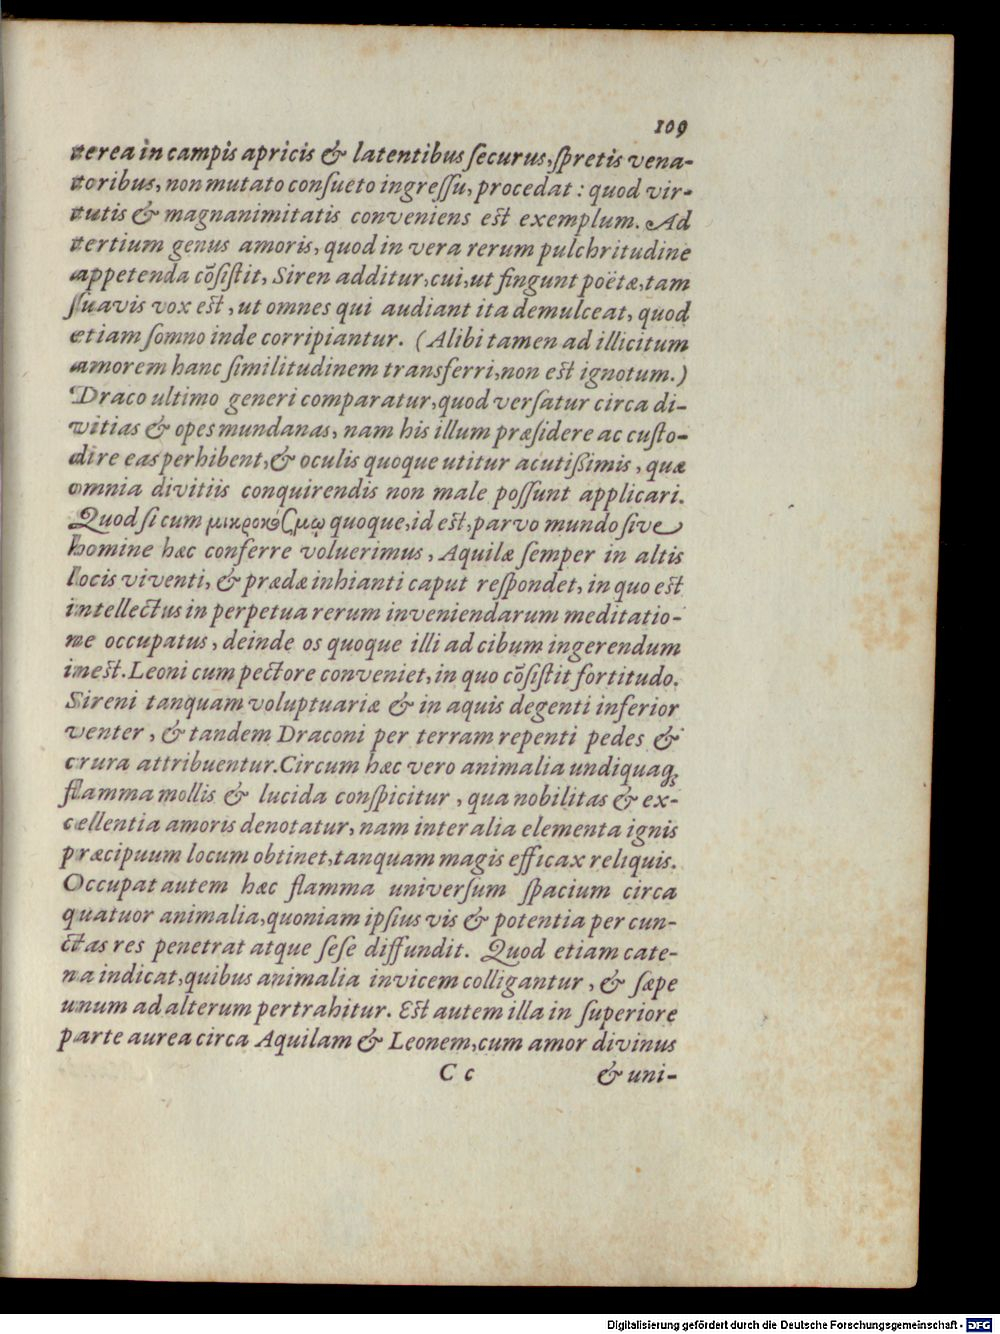 109
terea in campis apricis & latentibus ſecurus, ſpretis vena-
toribus, non mutato conſueto ingreſſu, procedat : quod vir-
tutis & magnanimitatis conveniens eſt exemplum. Ad
tertium genus amoris, quod in vera rerum pulchritudine
appetenda cõſiſtit, Siren additur, cui, ut fingunt poëtæ, tam
ſuavis vox eſt, ut omnes qui audiant ita demulceat, quod
etiam ſomno inde corripiantur. (Alibi tamen ad illicitum
amorem hanc ſimilitudinem transferri, non eſt ignotum.)
Draco ultimo generi comparatur, quod verſatur circa di-
vitias & opes mundanas, nam his illum præſidere ac cuſto-
dire eas perhibent, & oculis quoque utitur acutißimis, quæ
omnia divitiis conquirendis non male poſſunt applicari.
Quod ſi cum μικροκόσμῳ quoque, id eſt, parvo mundo ſive
homine hæc conferre voluerimus, Aquilæ ſemper in altis
locis viventi, & prædæ inhianti caput reſpondet, in quo eſt
intellectus in perpetua rerum inveniendarum meditatio-
ne occupatus, deinde os quoque illi ad cibum ingerendum
ineſt. Leoni cum pectore conveniet, in quo cõſiſtit fortitudo.
Sireni tanquam voluptuariæ & in aquis degenti inferior
venter, & tandem Draconi per terram repenti pedes &
crura attribuentur. Circum hæc vero animalia undiquaq;
flamma mollis & lucida conſpicitur, qua nobilitas & ex-
cellentia amoris denotatur, nam inter alia elementa ignis
præcipuum locum obtinet, tanquam magis efficax reliquis.
Occupat autem hæc flamma univerſum ſpacium circa
quatuor animalia, quoniam ipſius vis & potentia per cun-
ctas res penetrat atque ſeſe diffundit. Quod etiam cate-
na indicat, quibus animalia invicem colligantur, & ſæpe
unum ad alterum pertrahitur. Eſt autem illa in ſuperiore
parte aurea circa Aquilam & Leonem, cum amor divinus
C c & uni-
Digitalisierung gefördert durch die Deutsche Forschungsgemeinschaft - DFG